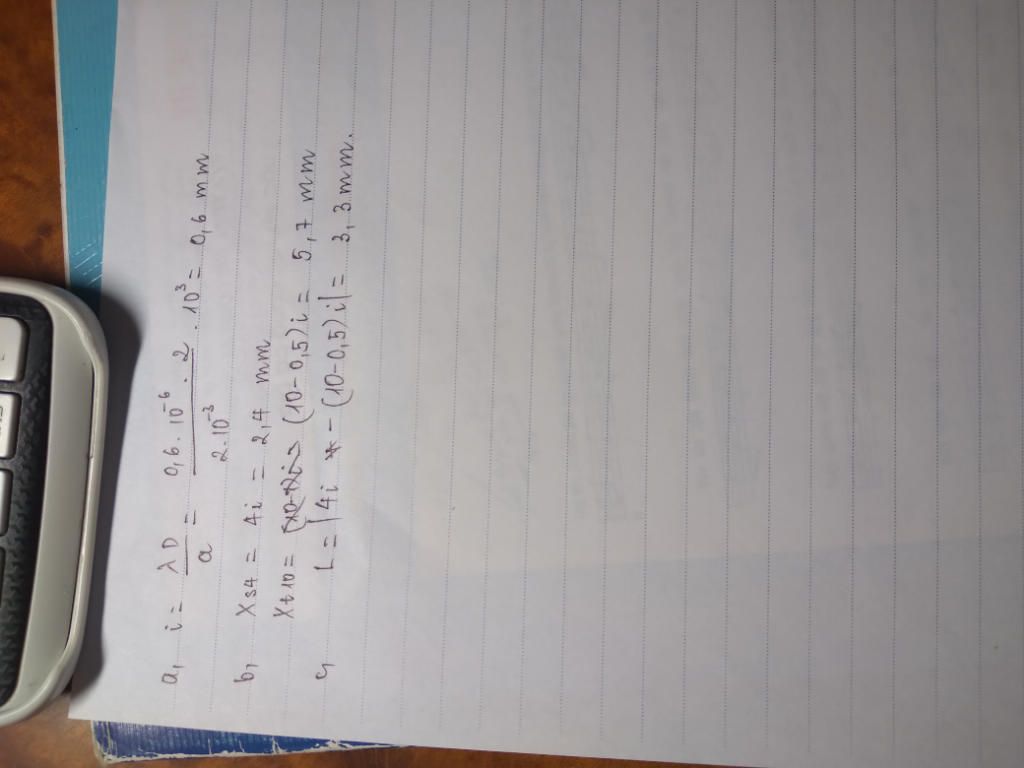 a, i = λD/a = 0,6.10⁻⁶.2/2.10⁻³ . 10³ = 0,6 mm
b, Xs4 = 4i = 2,4 mm
Xt10 = (10-0,5)i = 5,7 mm
c, L = |4i - (10-0,5)i| = 3,3mm.